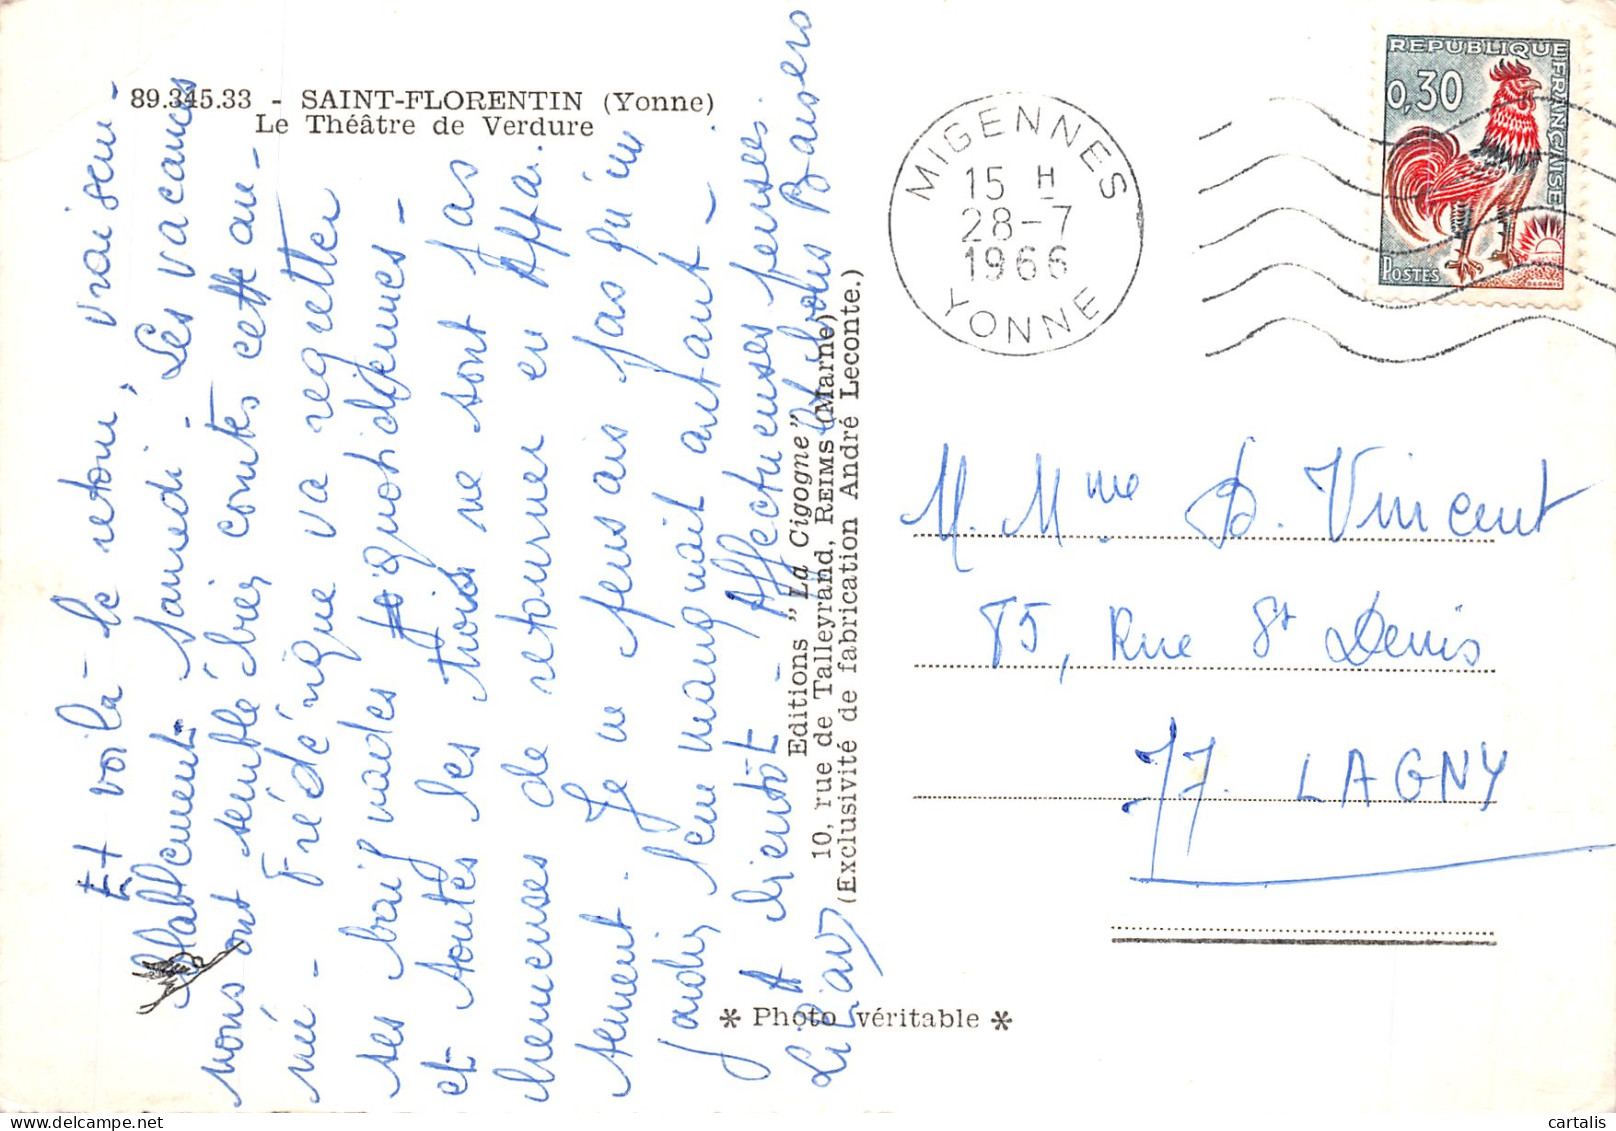 89.345.33 - SAINT-FLORENTIN (Yonne)
Le Théâtre de Verdure
Et voilà - le retour, vraisem-
blablement samedi - Les vacances
nous ont semblé bien courtes cette an-
née - Frédérique va regretter
ses baignades quotidiennes -
et toutes les trois ne sont pas
heureuses de retourner en Appa.
tement. Je ne pensais pas qu'un
jardin leur manquait autant -
A bientôt - Affectueuses pensées
et bons Baisers
Editions "La Cigogne"
10, rue de Talleyrand, REIMS (Marne)
(Exclusivité de fabrication André Leconte.)
* Photo véritable *
MIGENNES
15 H
28-7
1966
YONNE
REPUBLIQUE FRANÇAISE
0,30
POSTES
DECARIS
M. Mme D. Vincent
85, Rue St Denis
77. LAGNY
cartalis